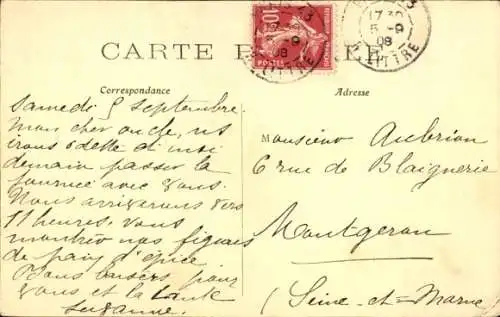 CARTE POSTALE
Correspondance
Adresse
10
POSTES
17 30
5 - 9
08
Samedi 5 septembre.
Mon cher oncle, ns
irons Odette et moi
demain passer la
journée avec vous.
Nous arriverons vers
11 heures, vous
montrer nos figures
de pain d'épice
Bons baisers pour
vous et la tante
Suzanne.
Monsieur Aubrion
6 rue de Blaignerie
Montgeron
(Seine-et-Marne)